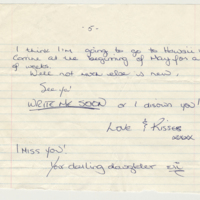 - 5 -
I think I'm going to go to Hawaii
Come at the beginning of May for a
of weeks.
Well not much else is new.
See-Ya!
WRITE ME SOON or I disown you!
Love & Kisses
xxxxx
I MISS YOU!
Your darling daughter